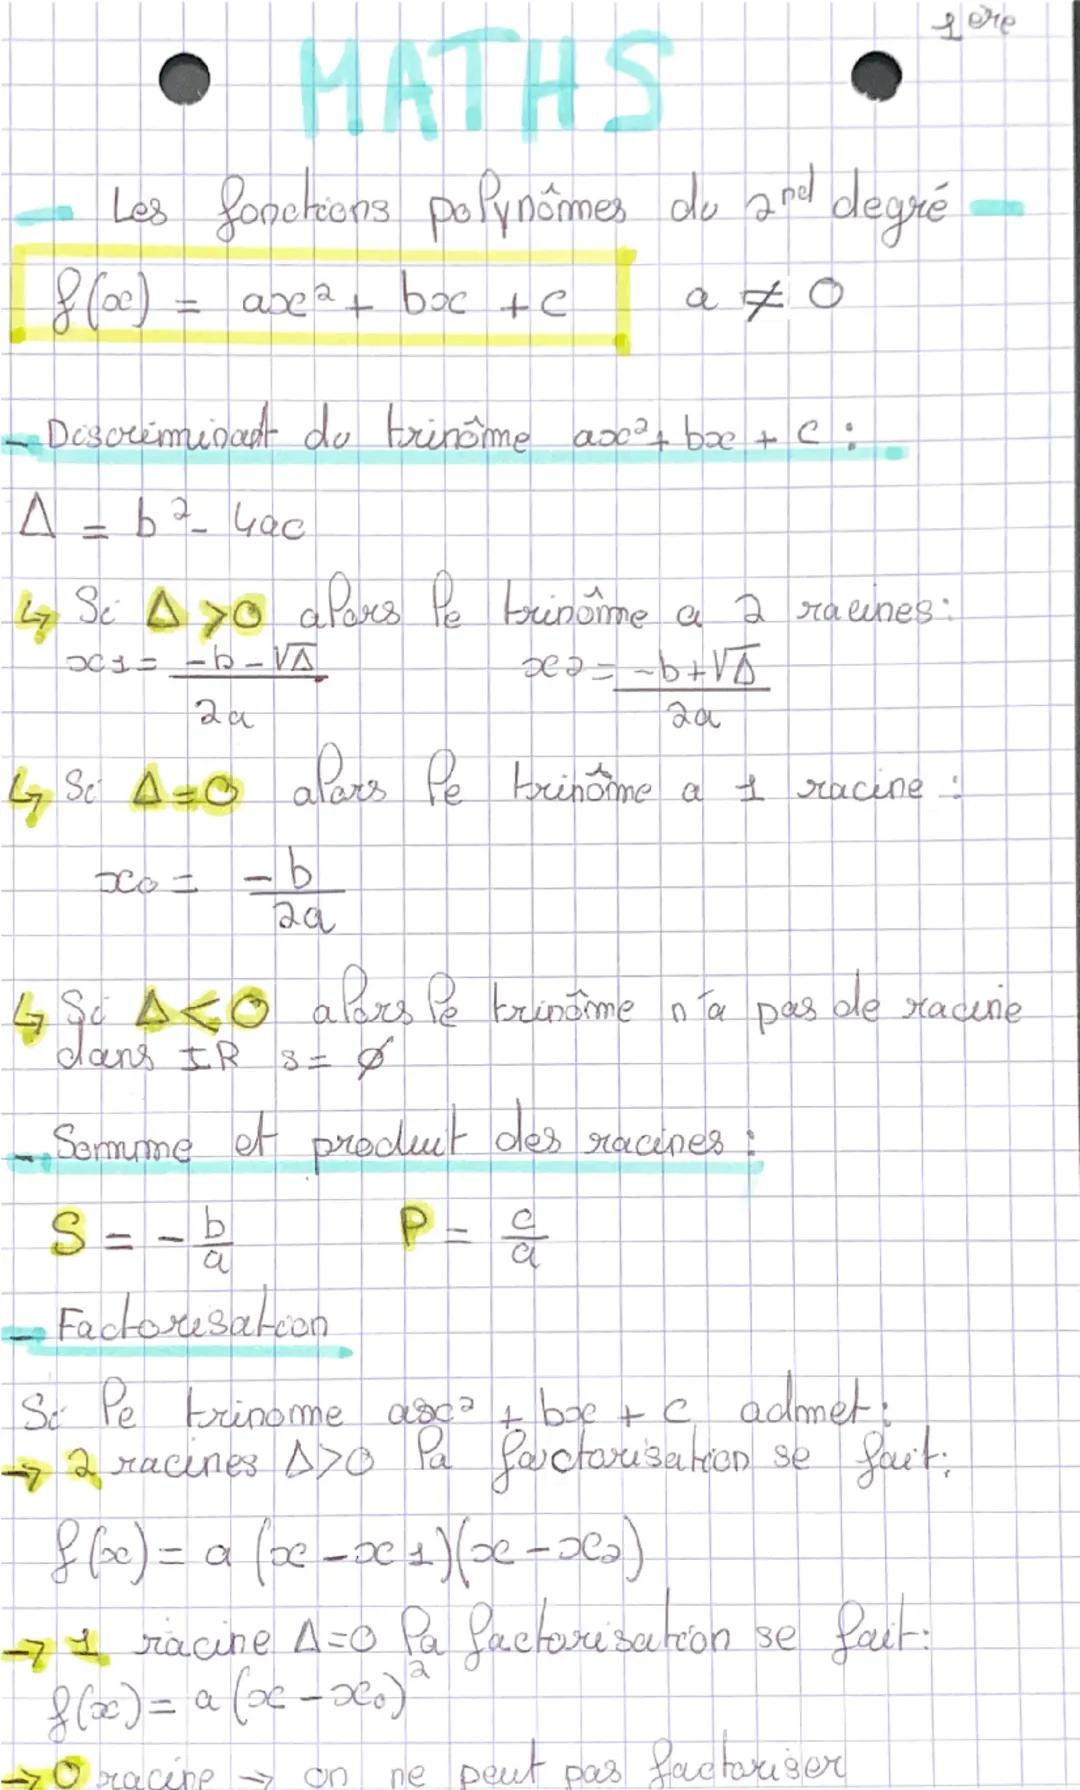 1ère
MATHS
- Les fonctions polynômes du 2nd degré -
f(x) = ax² + bx + c   a ≠ 0
- Discriminant du trinôme ax² + bx + c :
Δ = b² - 4ac
↳ Si Δ > 0 alors le trinôme a 2 racines :
x1 = (-b - √Δ) / 2a   x2 = (-b + √Δ) / 2a
↳ Si Δ = 0 alors le trinôme a 1 racine :
x0 = -b / 2a
↳ Si Δ < 0 alors le trinôme n'a pas de racine
dans IR S = ∅
- Somme et produit des racines :
S = - b/a   P = c/a
- Factorisation
Si le trinome ax² + bx + c admet :
→ 2 racines Δ > 0 la factorisation se fait :
f(x) = a (x - x1)(x - x2)
→ 1 racine Δ = 0 la factorisation se fait :
f(x) = a (x - x0)²
→ 0 racine → on ne peut pas factoriser